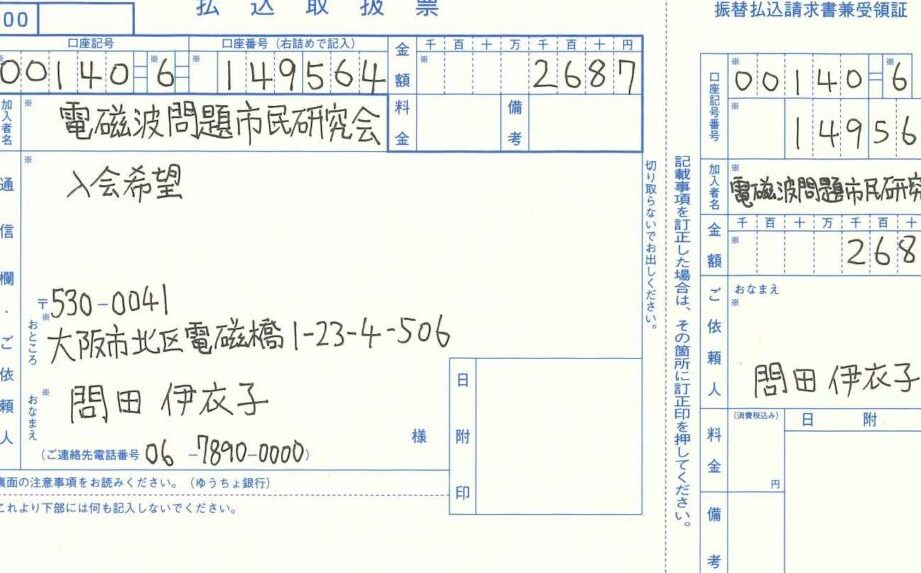 払込取扱票
00
口座記号 口座番号(右詰めで記入)
00140-6- 149564
金額 千百十万千百十円
2687
加入者名
電磁波問題市民研究会
料金 備考
通信欄・ご依頼人
入会希望
〒530-0041
おところ
大阪市北区電磁橋1-23-4-506
おなまえ
問田 伊衣子
様
(ご連絡先電話番号 06-7890-0000)
日附印
裏面の注意事項をお読みください。(ゆうちょ銀行)
これより下部には何も記入しないでください。
切り取らないでお出しください。
記載事項を訂正した場合は、その箇所に訂正印を押してください。
振替払込請求書兼受領証
口座記号番号
00140-6
14956
加入者名
電磁波問題市民研究
金額 千百十万千百十
268
ご依頼人
おなまえ
問田 伊衣子
料金
(消費税込み)
円
日附
備考